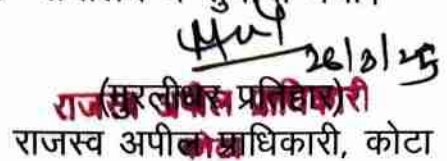 26/3/25
(मुरलीधर प्रतिहार)
राजस्व अपील प्राधिकारी
राजस्व अपील प्राधिकारी, कोटा
कोटा